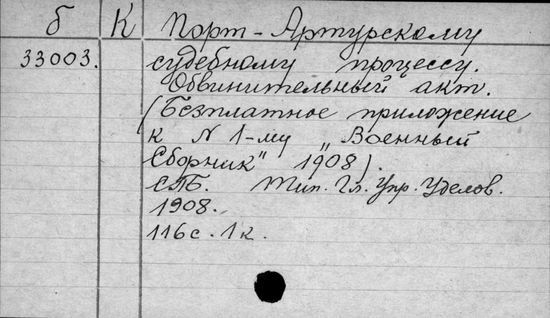 б К Порт-Артурскому
33003. судебному процессу.
Обвинительный акт.
(Безплатное приложение
к N 1-му „Военный
Сборник" 1908).
СПБ. Тип. Гл. Упр. Уделов.
1908.
116 с. 1 к.